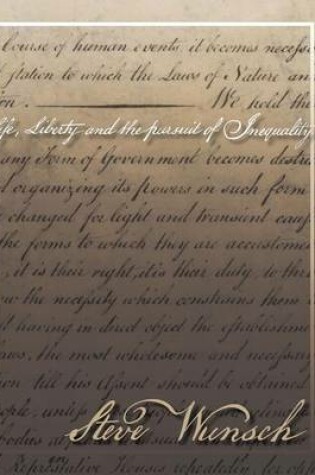 Course of human events it becomes necess
station to which the Laws of Nature an
ion. We hold th
ife, Liberty and the pursuit of Inequality
any Form of Government becomes destr
organizing its powers in such form
changed for light and transient caus
the forms to which they are accustome
, it is their right, it is their duty, to thr
w the necessity which constrains them
having in direct object the establish
aws, the most wholesome and necessary
ion till his Assent should be obtained
ople, unless
Steve Wunsch
bodies
Representative Houses repeatedly